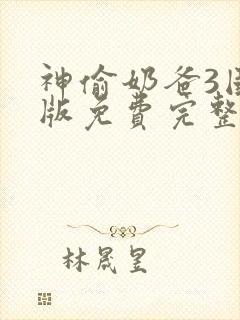 神偷奶爸3国
版免费完整
林晟昱